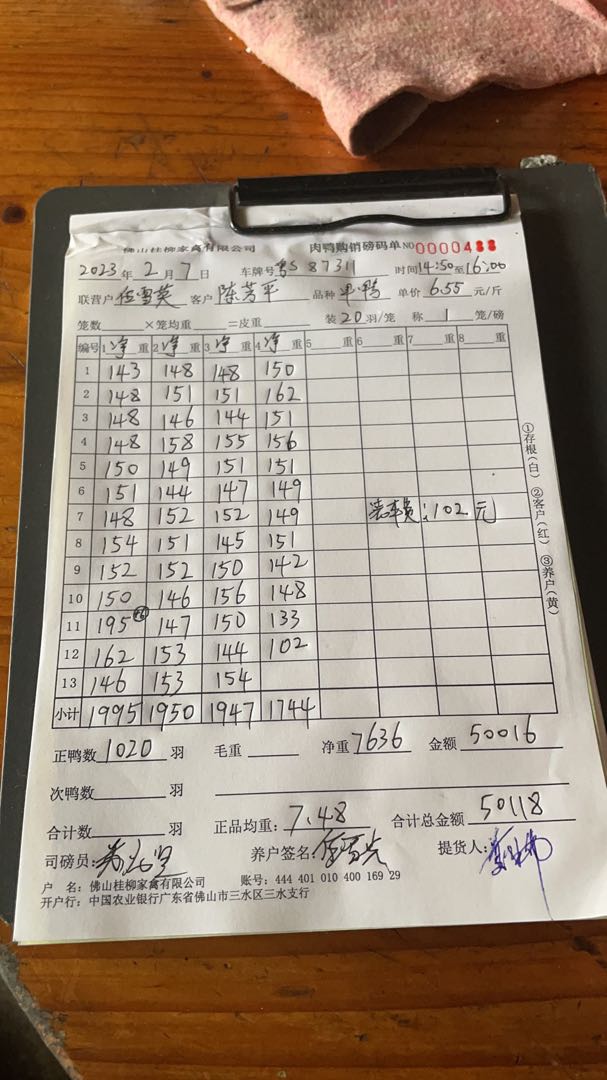 佛山桂柳家禽有限公司 肉鸭购销磅码单 NO 0000488
2023年2月7日 车牌号 粤S 87311 时间14:50至16:00
联营户 伍雪英 客户 陈芳平 品种 单价 6.55 元/斤
笼数 ×笼均重 =皮重 装20羽/笼 称 1 笼/磅
编号 1净重 2净重 3净重 4净重 5 重 6 重 7 重 8 重
1 143 148 148 150
2 148 151 151 162
3 148 146 144 151
4 148 158 155 156
5 150 149 151 151
6 151 144 147 149
7 148 152 152 149 装车费:102元
8 154 151 145 151
9 152 152 150 142
10 150 146 156 148
11 195 147 150 133
12 162 153 144 102
13 146 153 154
小计 1995 1950 1947 1744
正鸭数 1020 羽 毛重 净重 7636 金额 50016
次鸭数 羽
合计数 羽 正品均重: 7.48 合计总金额 50118
司磅员: 养户签名: 提货人:
户 名: 佛山桂柳家禽有限公司 账号: 444 401 010 400 169 29
开户行: 中国农业银行广东省佛山市三水区三水支行
①存根(白) ②客户(红) ③养户(黄)